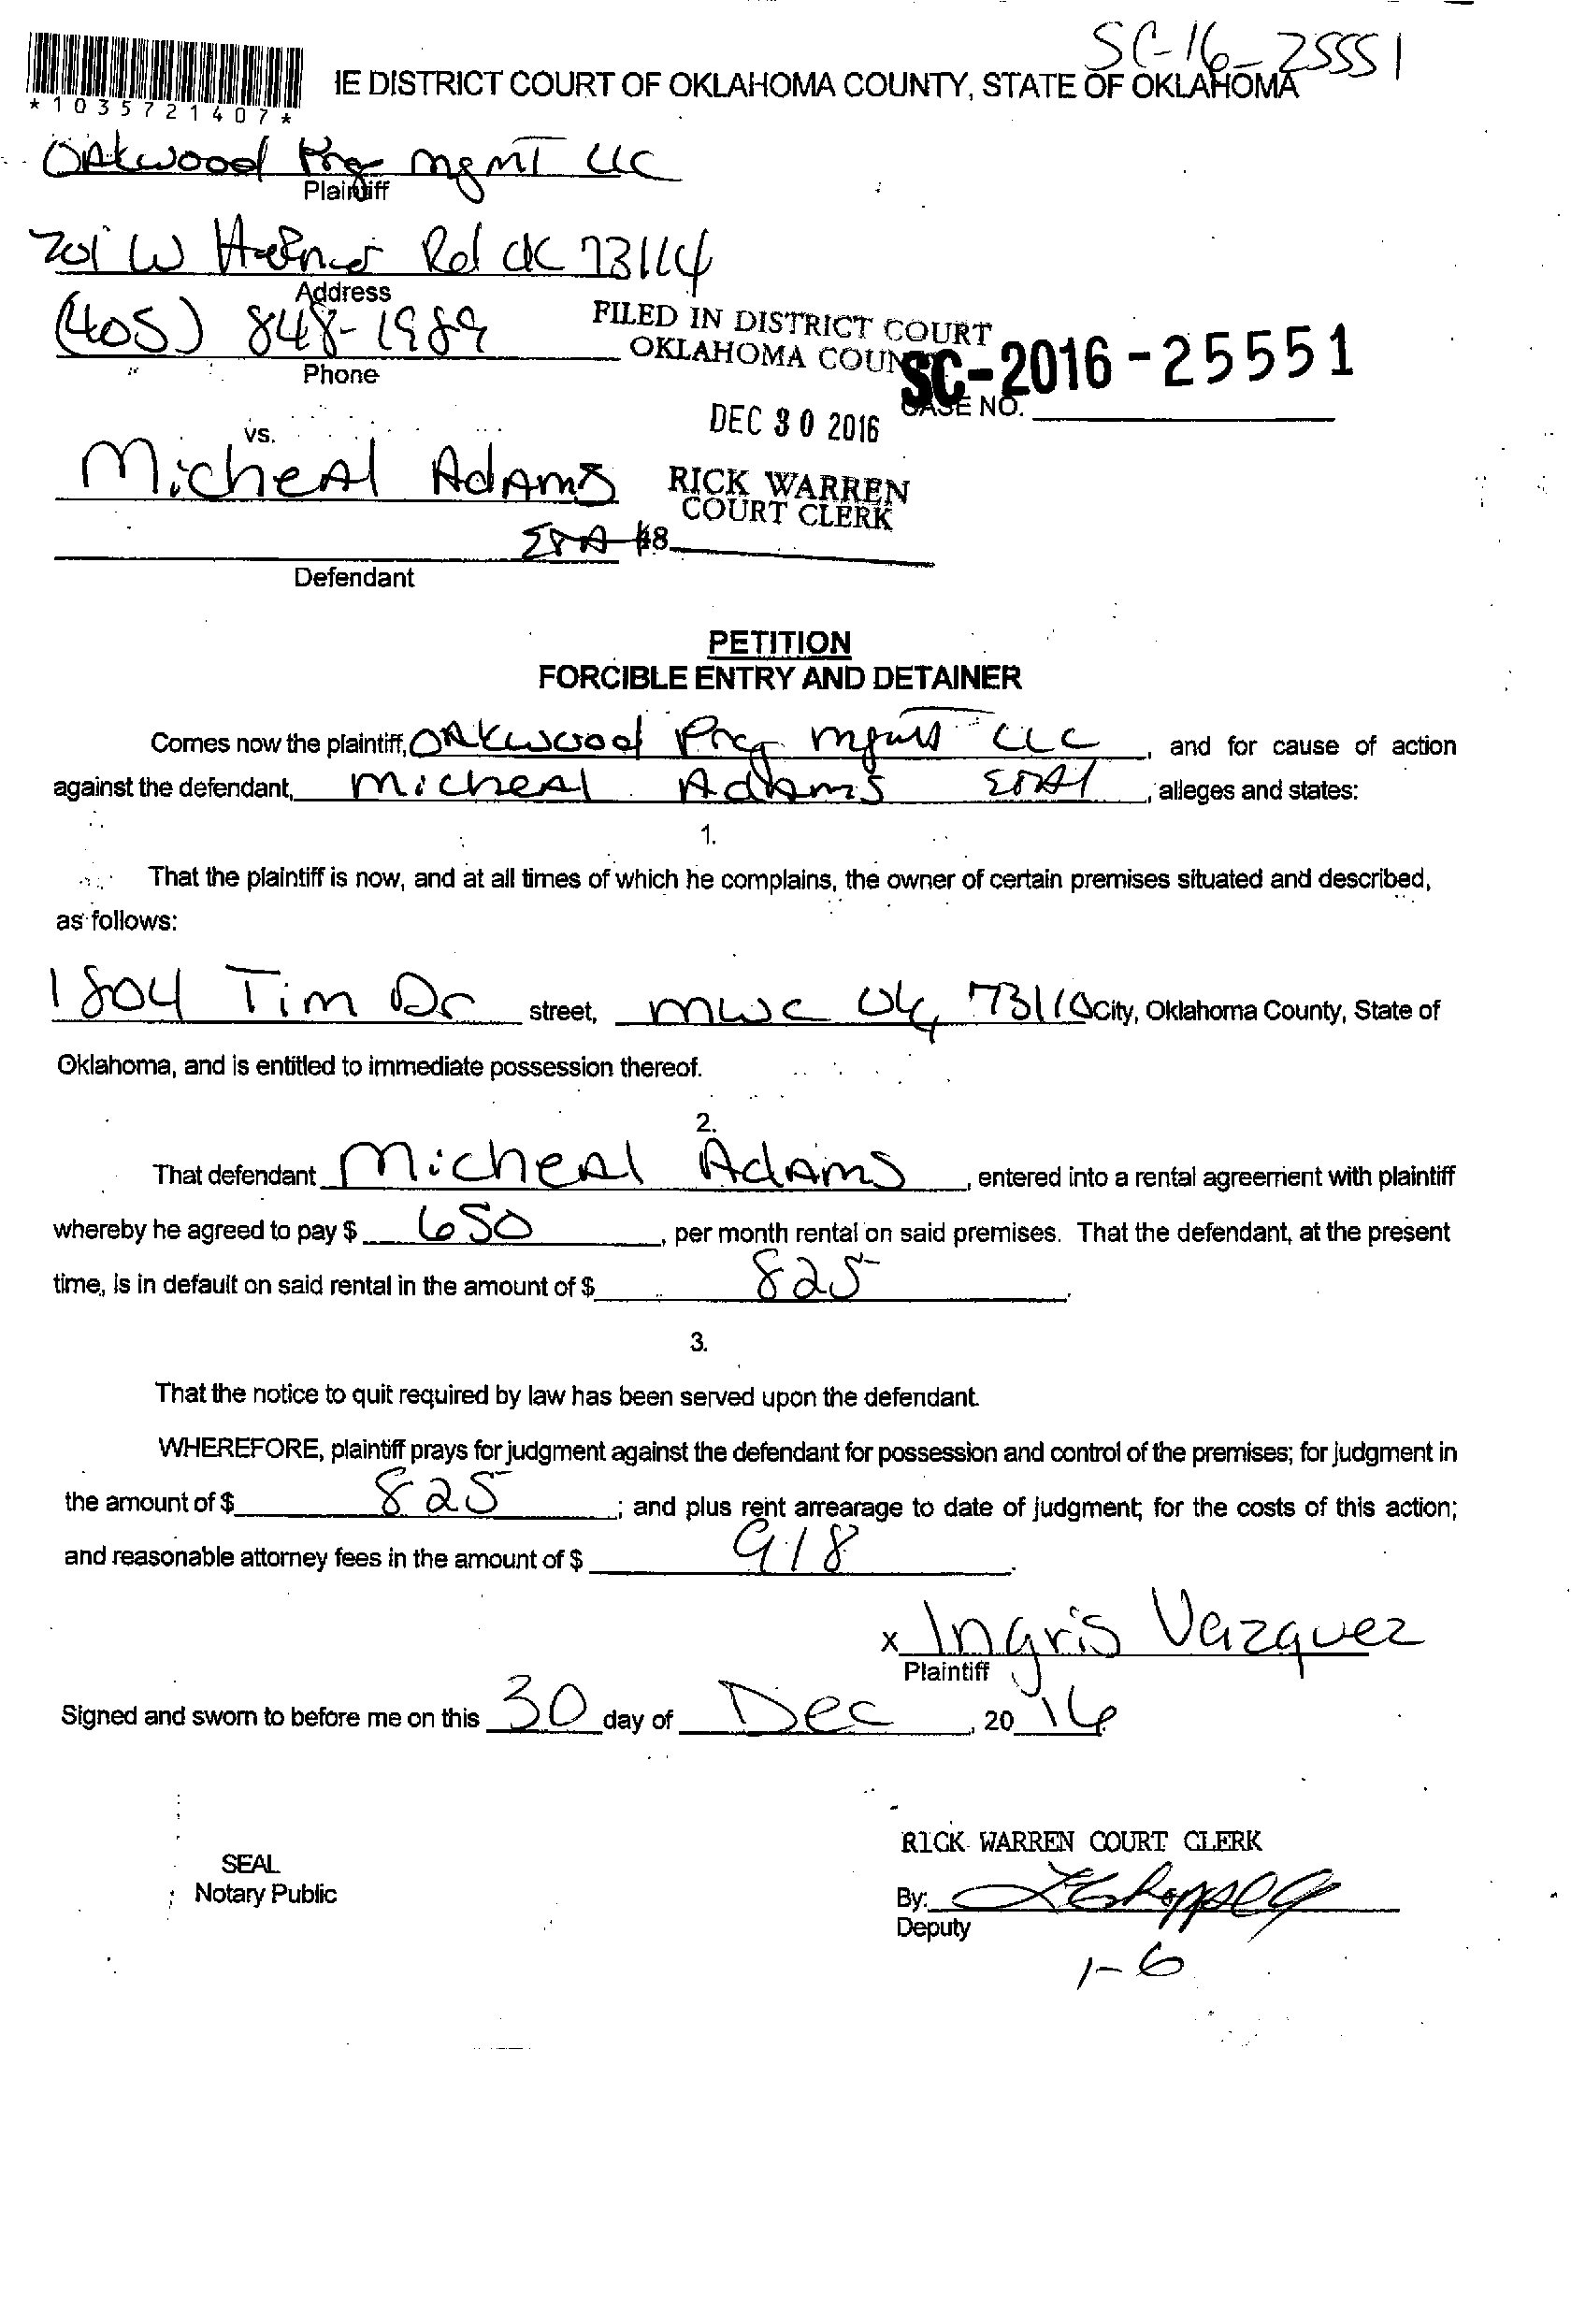 SC-16-25551
IE DISTRICT COURT OF OKLAHOMA COUNTY, STATE OF OKLAHOMA
*1035721407*
OAkwood Prop mgmT LLC
Plaintiff
201 W Hefner Rd OK 73114
Address
(405) 848-1989
Phone
FILED IN DISTRICT COURT
OKLAHOMA COUN
SC-2016-25551
CASE NO.
DEC 30 2016
vs.
MicheAl AdAms
RICK WARREN
COURT CLERK
48
Defendant
PETITION
FORCIBLE ENTRY AND DETAINER
Comes now the plaintiff, OAKwood Prop mgmt LLC, and for cause of action
against the defendant, micheAl AdAms, alleges and states:
1.
That the plaintiff is now, and at all times of which he complains, the owner of certain premises situated and described,
as follows:
1804 Tim Dr street, mwc Ok, 73110 City, Oklahoma County, State of
Oklahoma, and is entitled to immediate possession thereof.
2.
That defendant MicheAl AdAms, entered into a rental agreement with plaintiff
whereby he agreed to pay $ 650, per month rental on said premises. That the defendant, at the present
time, is in default on said rental in the amount of $ 825.
3.
That the notice to quit required by law has been served upon the defendant.
WHEREFORE, plaintiff prays for judgment against the defendant for possession and control of the premises; for judgment in
the amount of $ 825; and plus rent arrearage to date of judgment; for the costs of this action;
and reasonable attorney fees in the amount of $ 918.
x Ingris Vazquez
Plaintiff
Signed and sworn to before me on this 30 day of Dec, 2016
RICK WARREN COURT CLERK
SEAL
Notary Public
By:
Deputy
1-6